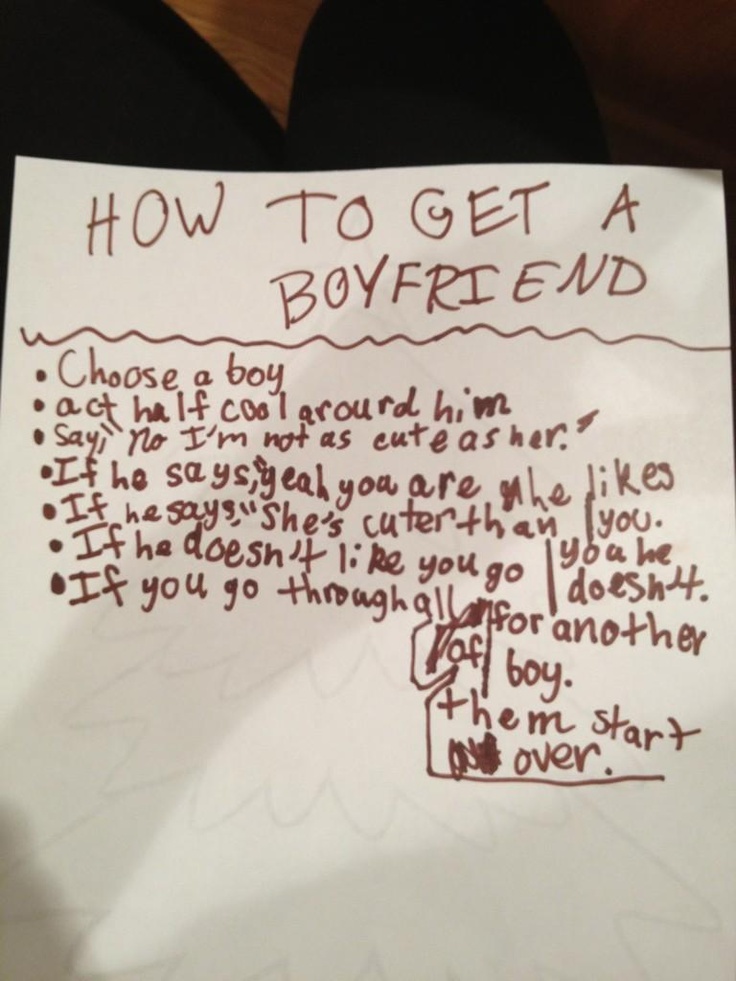 HOW TO GET A
BOYFRIEND
• Choose a boy
• act half cool around him
• Say, "no I'm not as cute as her."
• If he says, "yeah you are he likes
you.
• If he says, "She's cuter than
you he
doesn't.
• If he doesn't like you go
for another
boy.
• If you go through all
of
them start
over.